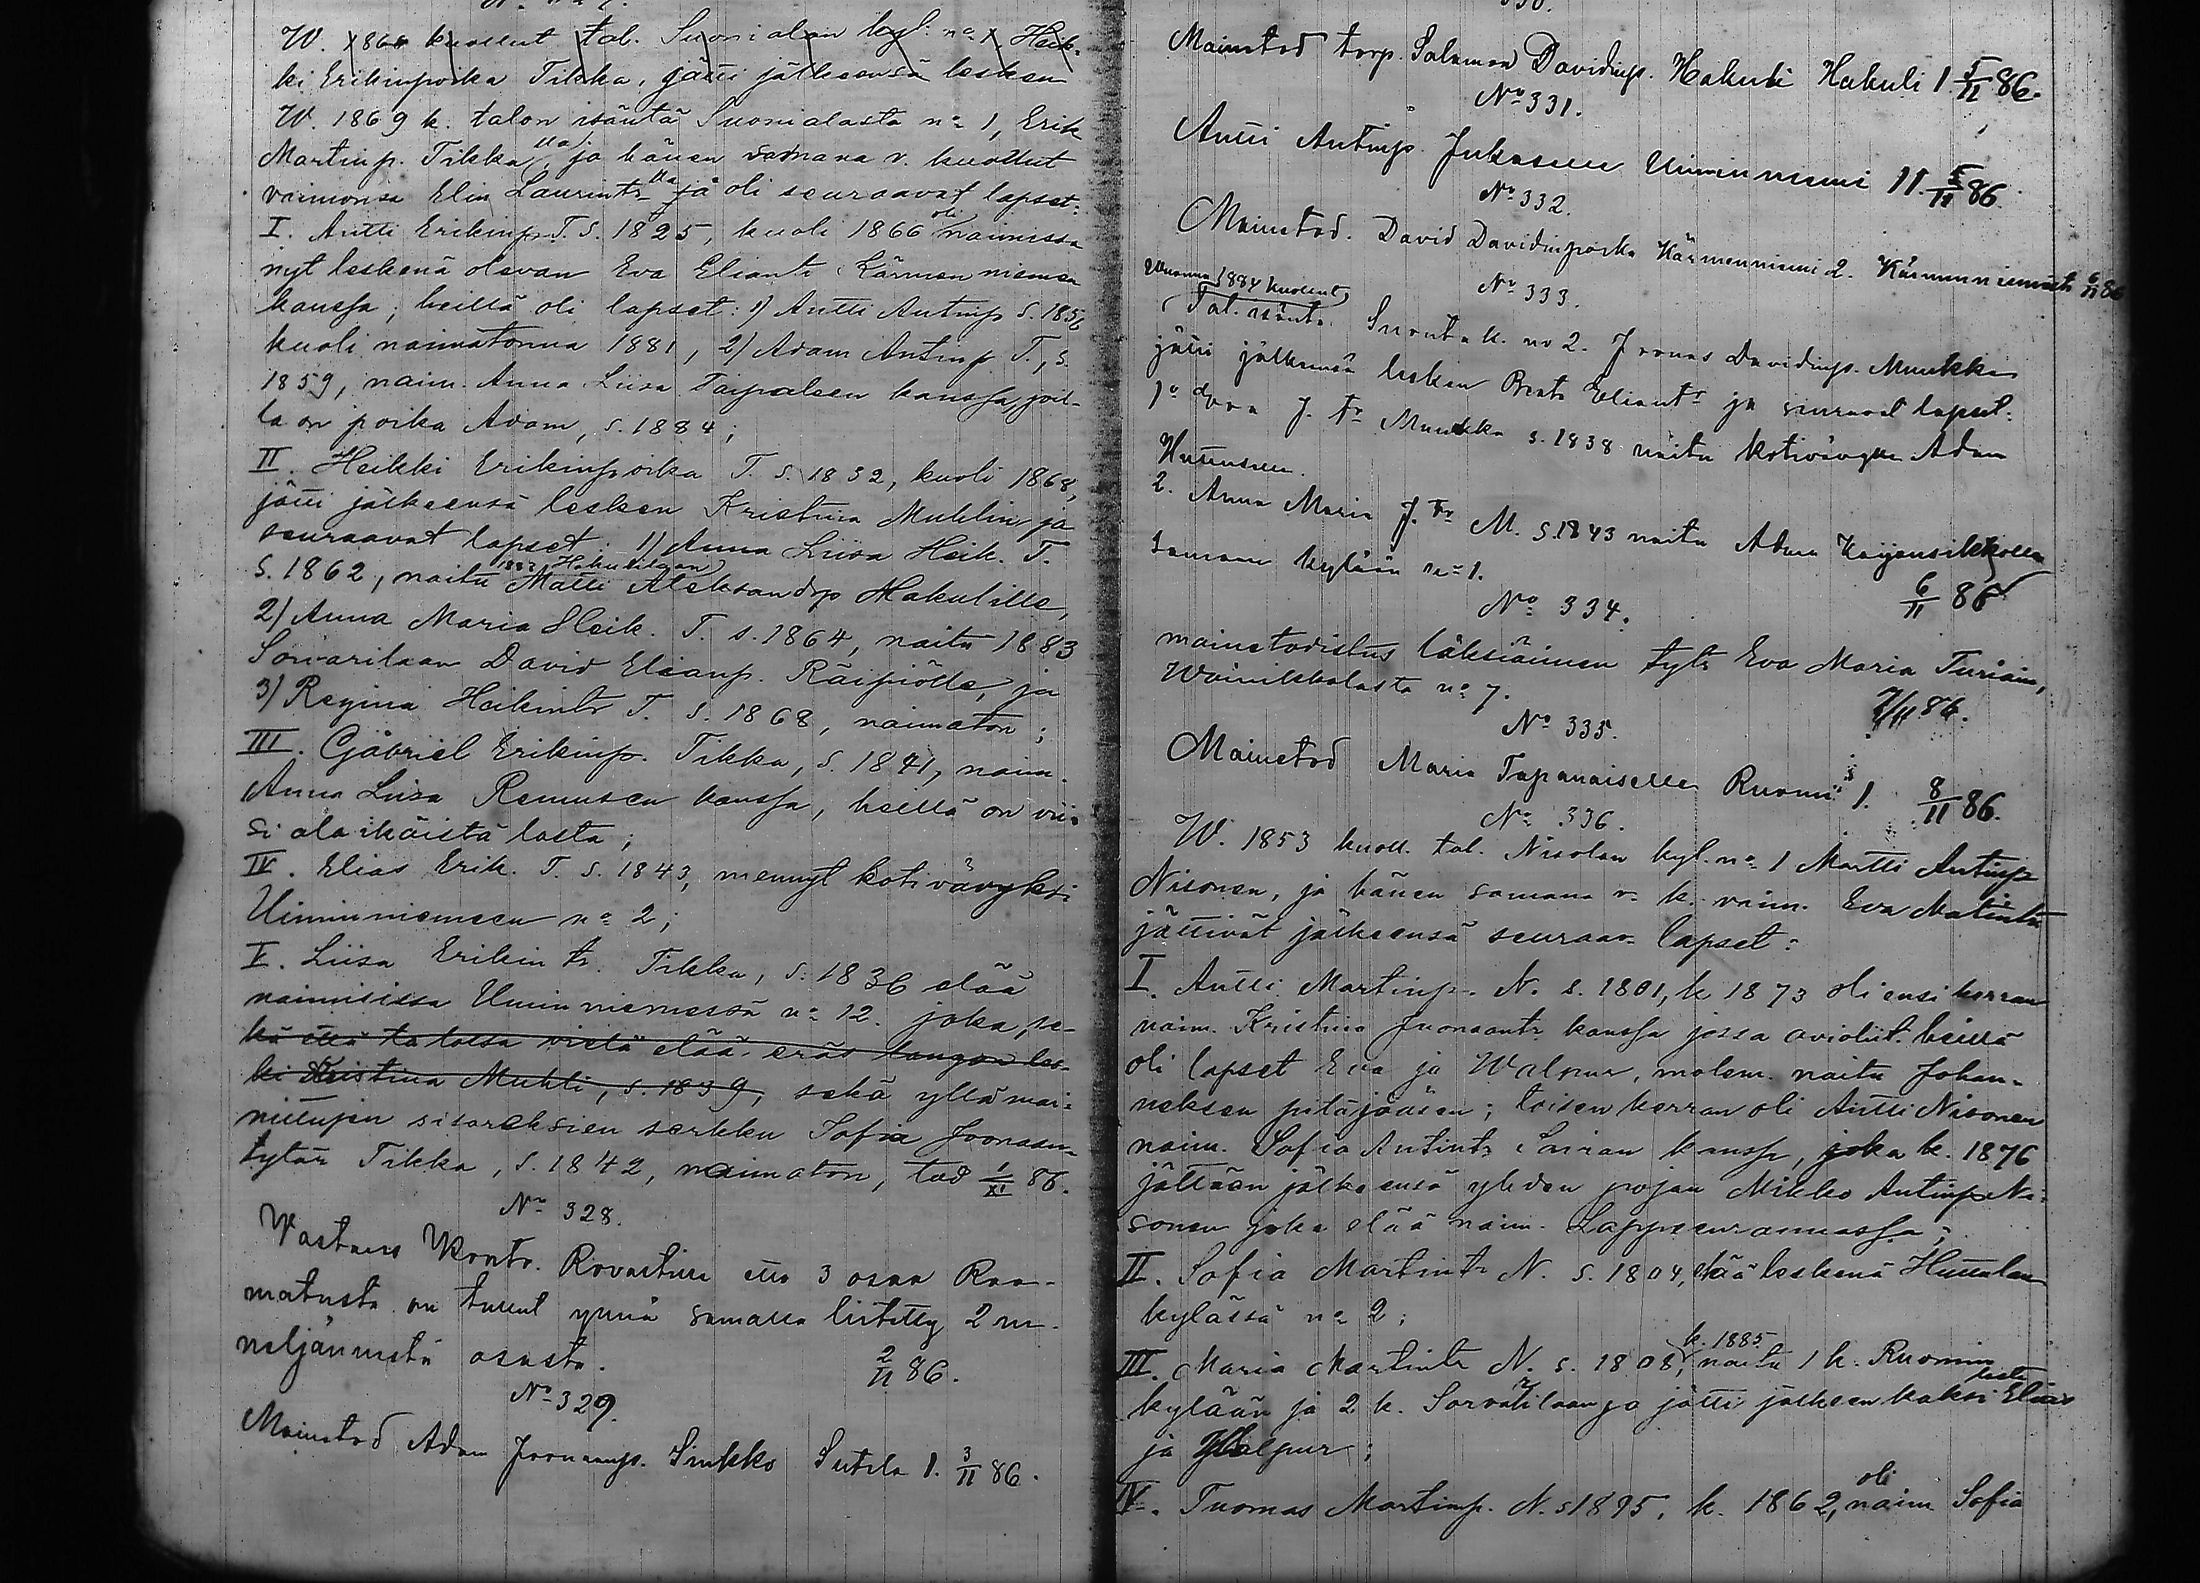 W. 1868 kuollut tal. Suonialan kyl. no 1 Heik-
ki Erikinpoika Tikka, jätti jälkeensä lesken
W. 1869 k. talon isäntä Suonialasta no 1, Erik
Martinp. Tikka lla, ja hänen samana v. kuollut
vaimonsa Elin Laurintr lla ja oli seuraavat lapset:
I. Antti Erikinp. T. s. 1825, kuoli 1866 oli naimissa
nyt leskenä olevan Eva Eliantr Kärmenniemen
kanssa; heillä oli lapset: 1) Antti Antinp. s. 1856
kuoli naimatonna 1881, 2) Adam Antinp. T., s.
1859, naim. Anna Liisa Taipalsen kanssa, joil-
la on poika Adam, s. 1884;
II. Heikki Erikinpoika T. s. 1832, kuoli 1868,
jätti jälkeensä lesken Kristina Muhlin ja
seuraavat lapset: 1) Anna Liisa Heik. T.
s. 1862, naitu 1882 Hakulilaan Matti Aleksandp Hakulille,
2) Anna Maria Heik. T. s. 1864, naitu 1883
Sorvarilaan David Elianp. Räipiölle, ja
3) Regina Heikintr T. s. 1868, naimaton;
III. Gabriel Erikinp. Tikka, s. 1841, naim.
Anna Liisa Remusen kanssa, heillä on vii-
si ala ikäistä lasta;
IV. Elias Erik. T. s. 1843, mennyt kotivävyksi
Uiminniemeen no 2;
V. Liisa Erikin tr. Tikka, s. 1836 elää
naimisissa Uiminniemessä no 12. joka se-
kä että talossa vielä elää eräs langon les-
ki Kristina Muhli, s. 1839, sekä yllä mai-
nittujen sisaruksien serkku Sofia Joonaan-
tytär Tikka, s. 1842, naimaton, tod 1/XI 86.
No 328.
Vastaus Kontr. Rovastiin että 3 osaa Raa-
matusta on tullut ynnä samalla liitetty 2 m.
neljännestä osasta. 2/11 86.
No 329.
Mainetod Adam Joonaanp. Sinkko Sutela 1. 3/11 86.
330.
Mainetod torp. Salomon Davidinp. Hakuli Hakuli 1 5/11 86.
No 331.
Antti Antinp. Jukasen Uiminniemi 11. 5/11 86.
No 332.
Mainetod. David Davidinpoika Kärmenniemi 2. Kärmenniemestä 6/11 86
No 333.
Vuonna 1884 kuollut
Tal. isäntä Suonta k. no 2. Joonas Davidinp. Muukka
jätti jälkeensä lesken Beata Eliantr ja seuraavat lapset:
1o J. tr Muukka s. 1838 naitu kotivävyn Adam
Huttunen.
2. Anna Maria J. tr M. s. 1843 naitu Adam
samaan kylään no 1. 6/11 86
No 334.
mainetodistus läksiäinen tytr Eva Maria
Wainikkalasta no 7. 7/11 86.
No 335.
Mainetod Maria Tapanaiselle Ruomi 1. 8/11 86.
No 336.
W. 1853 kuoll. tal. Nisolan kyl. no 1 Martti Antinp
Nisonen, ja hänen samana v. k. vaim. Eva Matintr
jättivät jälkeensä seuraav. lapset:
I. Antti Martinp. N. s. 1801, k 1873 oli ensi kerran
naim. Kristina Juonaantr kanssa jossa avioliit. heillä
oli lapset Eva ja Walpur, molem. naitu Johan-
neksen pitäjääsen; toisen kerran oli Antti Nisonen
naim. Sofia Antintr Sairan kanssa, joka k. 1876
jättäen jälkeensä yhden pojan Mikko Antinp Ni-
sonen joka elää naim. Lappeenrannassa;
II. Sofia Martintr N. s. 1804, elää leskenä Huttulan
kylässä no 2;
III. Maria Martintr N. s. 1808, k. 1885 naitu 1 k. Ruomin
kylään ja 2 k. Sorvarilaan ja jätti jälkeen kaksi lasta Elias
ja Walpur;
IV. Tuomas Martinp. N. s 1895, k. 1862, oli naim Sofia